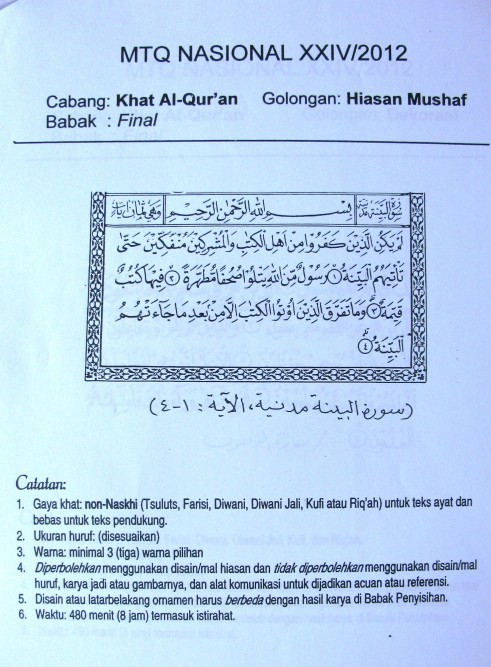 MTQ NASIONAL XXIV/2012
Cabang: Khat Al-Qur'an Golongan: Hiasan Mushaf
Babak : Final
سورة البينة مدنية بسم الله الرحمن الرحيم وهي ثمان آيات
لم يكن الذين كفروا من اهل الكتب والمشركين منفكين حتى
تأتيهم البينة ١ رسول من الله يتلوا صحفا مطهرة ٢ فيها كتب
قيمة ٣ وما تفرق الذين اوتوا الكتب الا من بعد ما جاءتهم
البينة ٤
(سورة البينة مدنية، الآية : ١-٤)
Catatan:
1. Gaya khat: non-Naskhi (Tsuluts, Farisi, Diwani, Diwani Jali, Kufi atau Riq'ah) untuk teks ayat dan
bebas untuk teks pendukung.
2. Ukuran huruf: (disesuaikan)
3. Warna: minimal 3 (tiga) warna pilihan
4. Diperbolehkan menggunakan disain/mal hiasan dan tidak diperbolehkan menggunakan disain/mal
huruf, karya jadi atau gambarnya, dan alat komunikasi untuk dijadikan acuan atau referensi.
5. Disain atau latarbelakang ornamen harus berbeda dengan hasil karya di Babak Penyisihan.
6. Waktu: 480 menit (8 jam) termasuk istirahat.